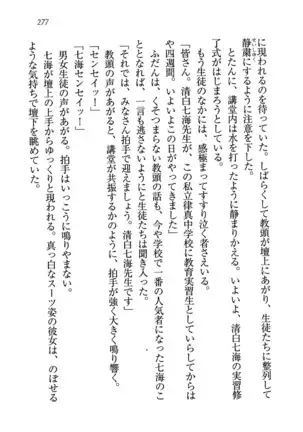 277
に現われるのを待っていた。しばらくして教頭が壇上にあがり、生徒たちに整列して
静粛にするように注意を下した。
せいしゅく
とたんに、講堂内は水を打ったように静まりかえる。いよいよ、清白七海の実習修
了式がはじまろうとしている。
もう生徒のなかには、感極まってすすり泣く者さえいる。
「皆さん。清白七海先生が、この私立律真中学校に教育実習生としていらしてからは
や四週間。いよいよこの日がやってきました」
ふだんは、くそつまらない教頭の話も、今や学校で一番の人気者になった七海のこ
ととなれば、一言も逃さないようにと生徒たちは聞き入った。
「それでは、みなさん拍手で迎えましょう。清白七海先生です」
教頭の声があがると、講堂が共振するかのように、拍手が強く大きく鳴り響く。
「七海センセイッ！」
「センセイッー！」
男女生徒の声があがる。拍手はいっこうに鳴りやまない。
七海が壇上の上手からゆっくりと現われる。真っ白なスーツ姿の彼女は、のぼせる
ような気持ちで壇下を眺めていた。